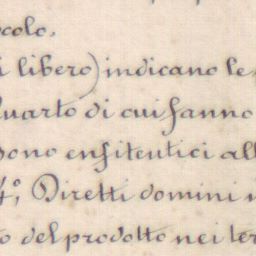 colo.
i libero) indicano le
Quarto di cui fanno
pono enfiteutici all
4.° Diretti domini
o del prodotto nei ter